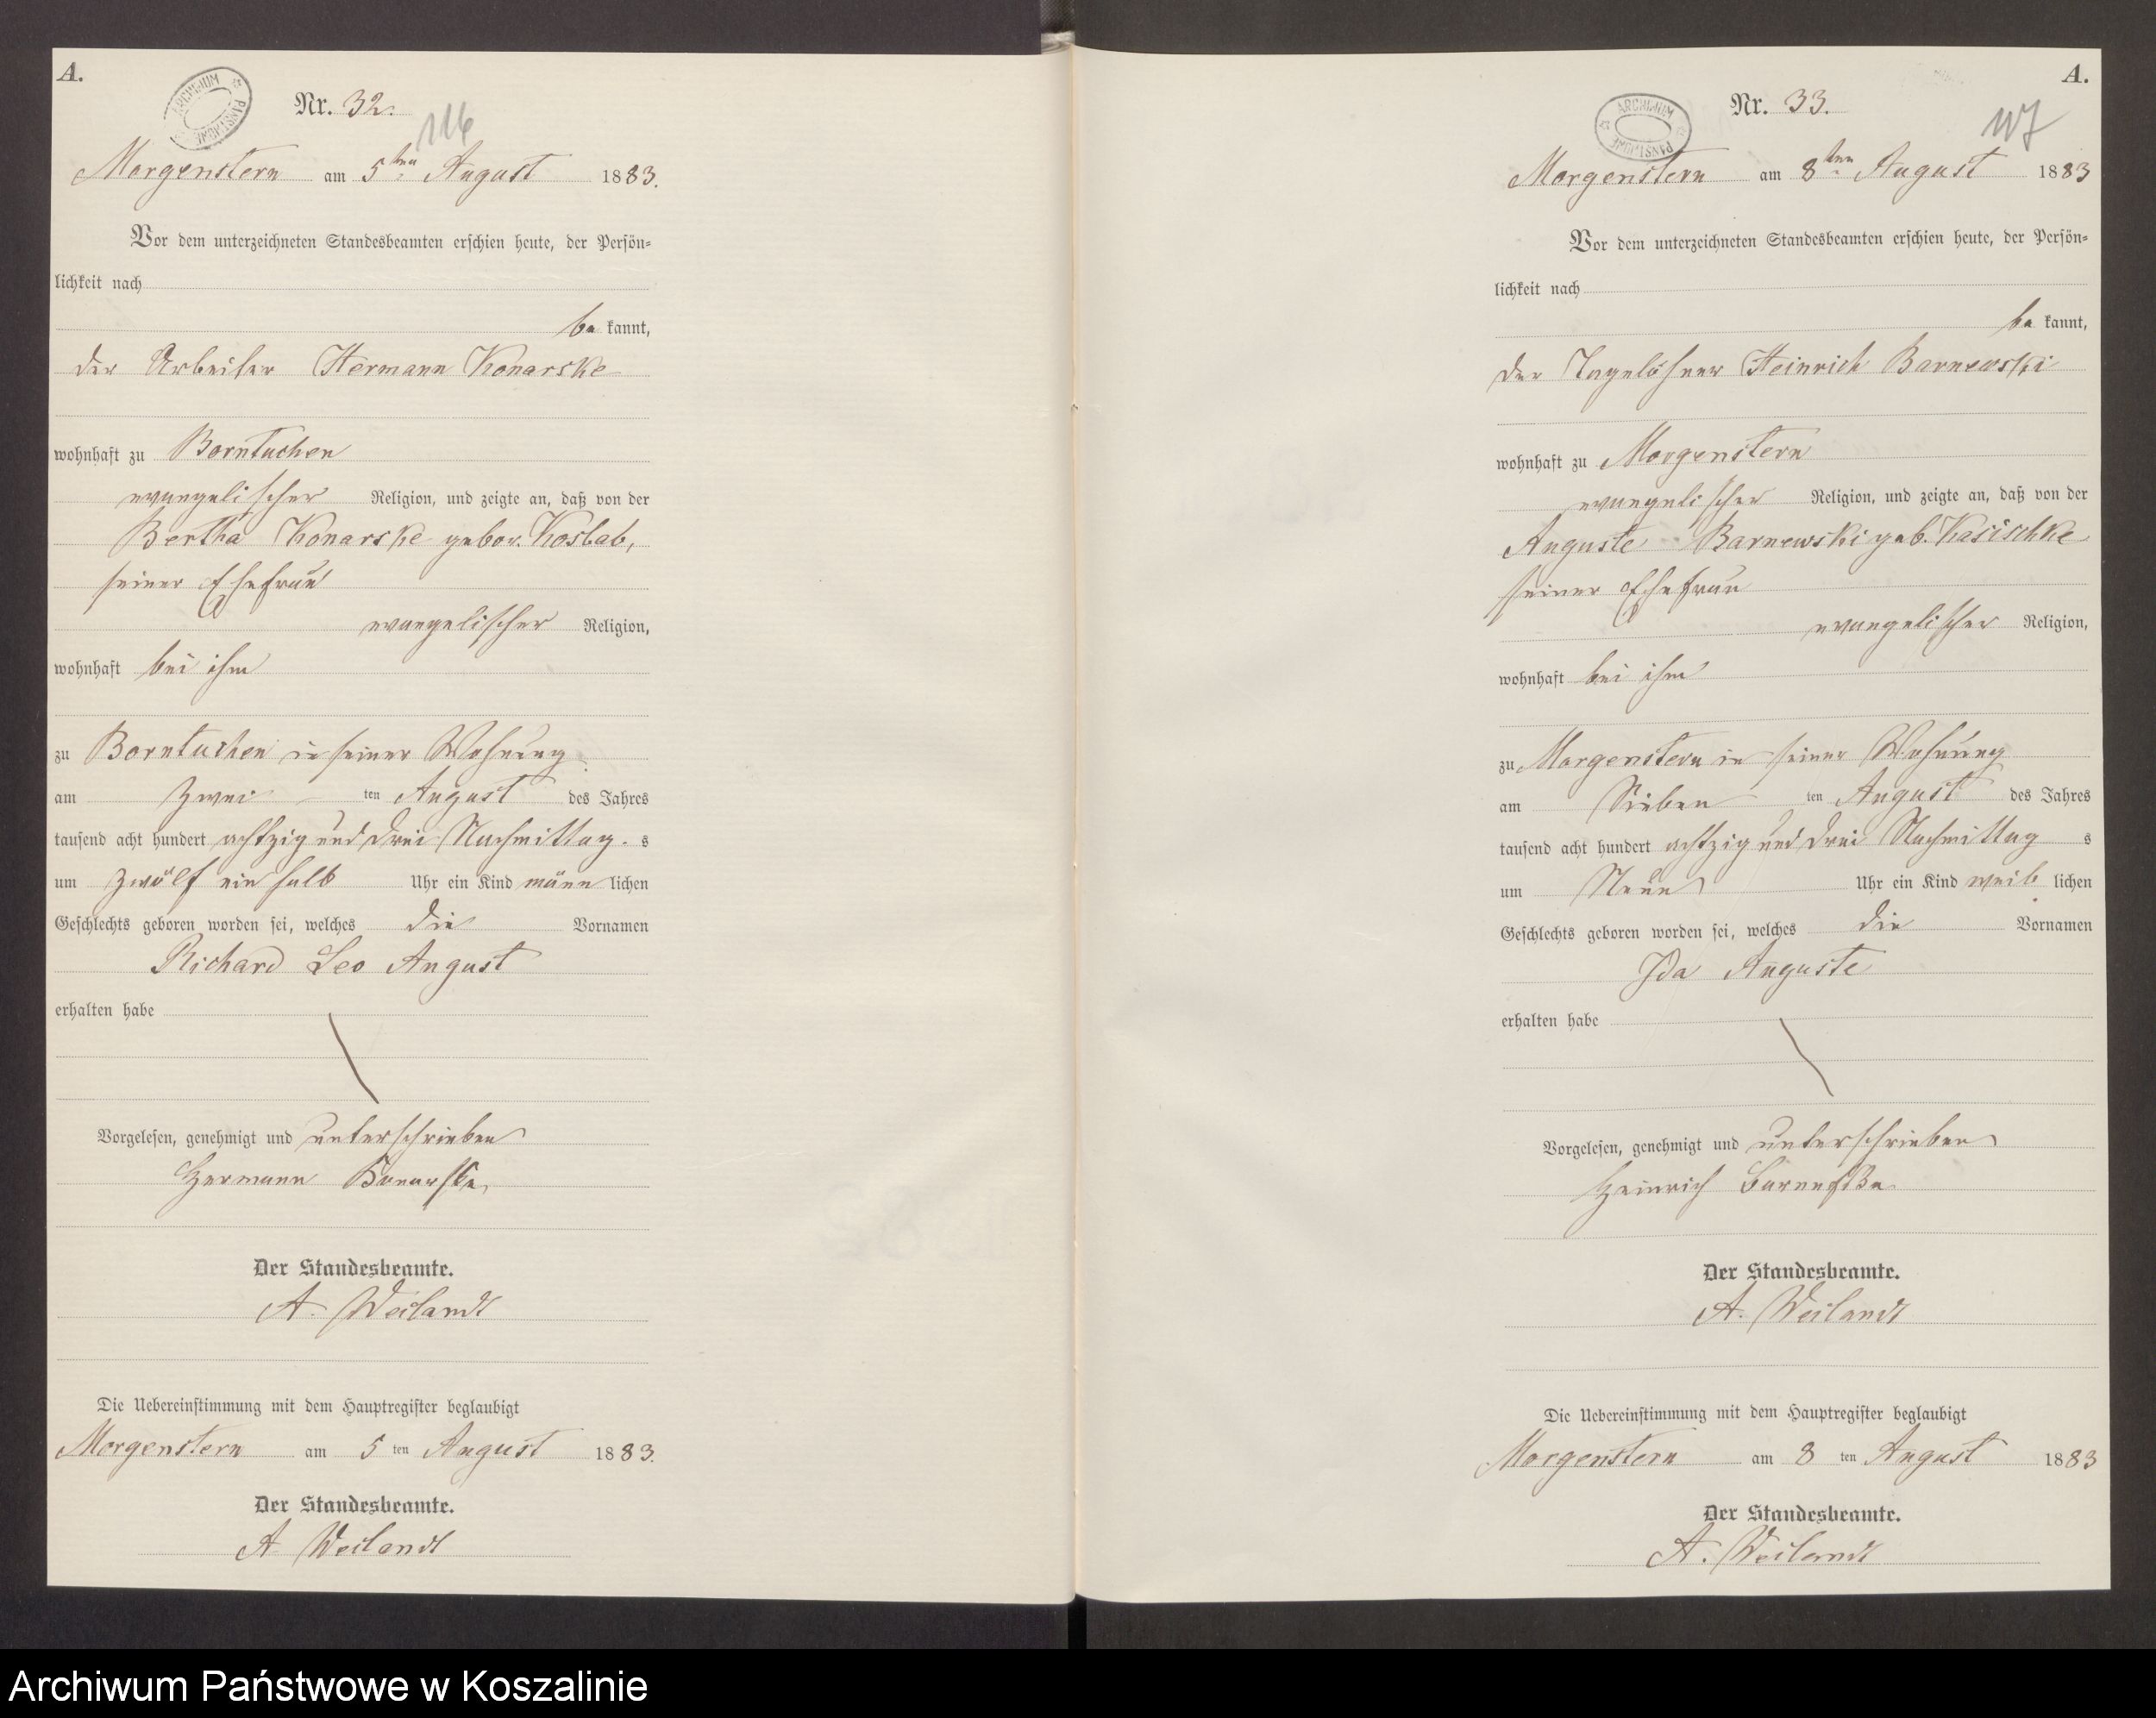 A.
ARCHIWUM PAŃSTWOWE
Nr. 32.
116
Morgenstern am 5ten August 1883.
Vor dem unterzeichneten Standesbeamten erschien heute, der Persön-
lichkeit nach
be kannt,
der Arbeiter Hermann Konarske
wohnhaft zu Borntuchen
evangelischer Religion, und zeigte an, daß von der
Bertha Konarske gebor. Koslab,
seiner Ehefrau
evangelischer Religion,
wohnhaft bei ihm
zu Borntuchen in seiner Wohnung
am Zwei ten August des Jahres
tausend acht hundert achtzig und drei Nachmittag. s
um zwölf ein halb Uhr ein Kind männ lichen
Geschlechts geboren worden sei, welches die Vornamen
Richard Leo August
erhalten habe
Vorgelesen, genehmigt und unterschrieben
Hermann Konarske
Der Standesbeamte.
A. Weilandt
Die Uebereinstimmung mit dem Hauptregister beglaubigt
Morgenstern am 5 ten August 1883.
Der Standesbeamte.
A Weilandt
A.
ARCHIWUM PAŃSTWOWE
Nr. 33.
117
Morgenstern am 8ten August 1883
Vor dem unterzeichneten Standesbeamten erschien heute, der Persön-
lichkeit nach
be kannt,
der Tagelöhner Heinrich Barnewski
wohnhaft zu Morgenstern
evangelischer Religion, und zeigte an, daß von der
Auguste Barnewski geb. Kasischke
seiner Ehefrau
evangelischer Religion,
wohnhaft bei ihm
zu Morgenstern in seiner Wohnung
am Sieben ten August des Jahres
tausend acht hundert achtzig und drei Nachmittag s
um Neun Uhr ein Kind weib lichen
Geschlechts geboren worden sei, welches die Vornamen
Ida Auguste
erhalten habe
Vorgelesen, genehmigt und unterschrieben
Heinrich
Der Standesbeamte.
A. Weilandt
Die Uebereinstimmung mit dem Hauptregister beglaubigt
Morgenstern am 8 ten August 1883
Der Standesbeamte.
A. Weilandt
Archiwum Państwowe w Koszalinie